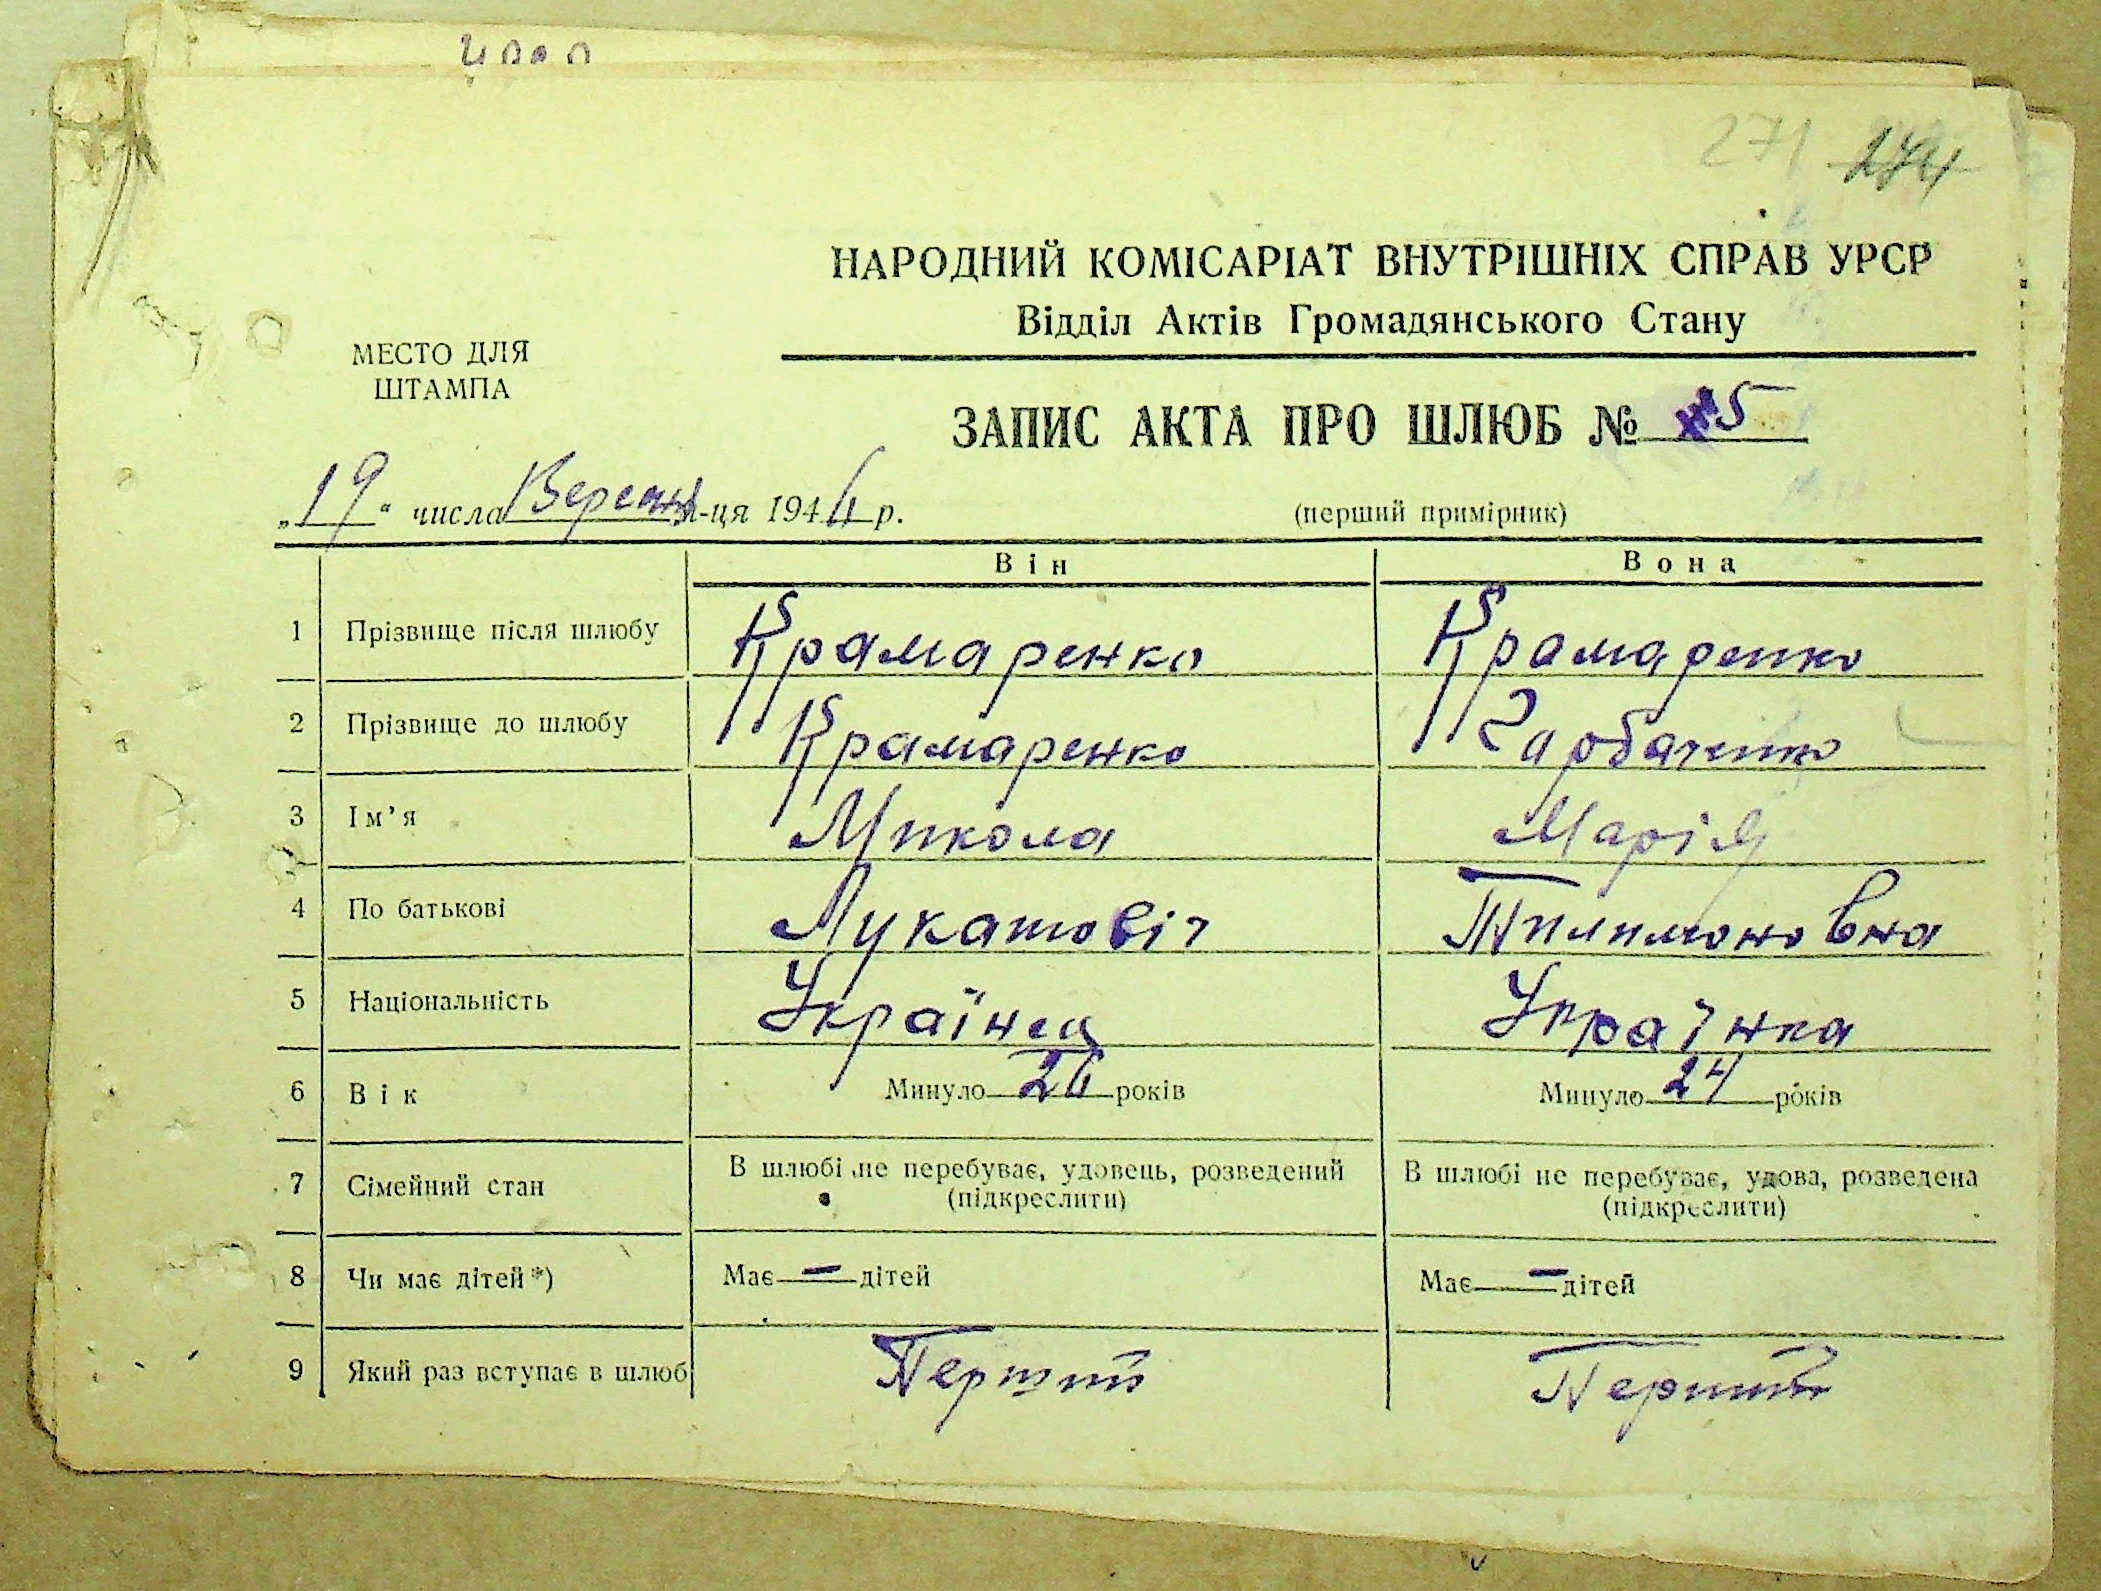 271 274
НАРОДНИЙ КОМІСАРІАТ ВНУТРІШНІХ СПРАВ УРСР
Відділ Актів Громадянського Стану
МЕСТО ДЛЯ
ШТАМПА
ЗАПИС АКТА ПРО ШЛЮБ № 5
„19“ числа Вересня м-ця 1944 р.
(перший примірник)
Він Вона
1 Прізвище після шлюбу Крамаренко Крамаренко
2 Прізвище до шлюбу Крамаренко Гарбаченко
3 Ім’я Микола Марія
4 По батькові Лукашовіч Пилимоновна
5 Національність Українец Українка
6 Вік Минуло 26 років Минуло 24 років
7 Сімейний стан В шлюбі не перебуває, удовець, розведений (підкреслити) В шлюбі не перебуває, удова, розведена (підкреслити)
8 Чи має дітей*) Має — дітей Має — дітей
9 Який раз вступає в шлюб Перший Перший